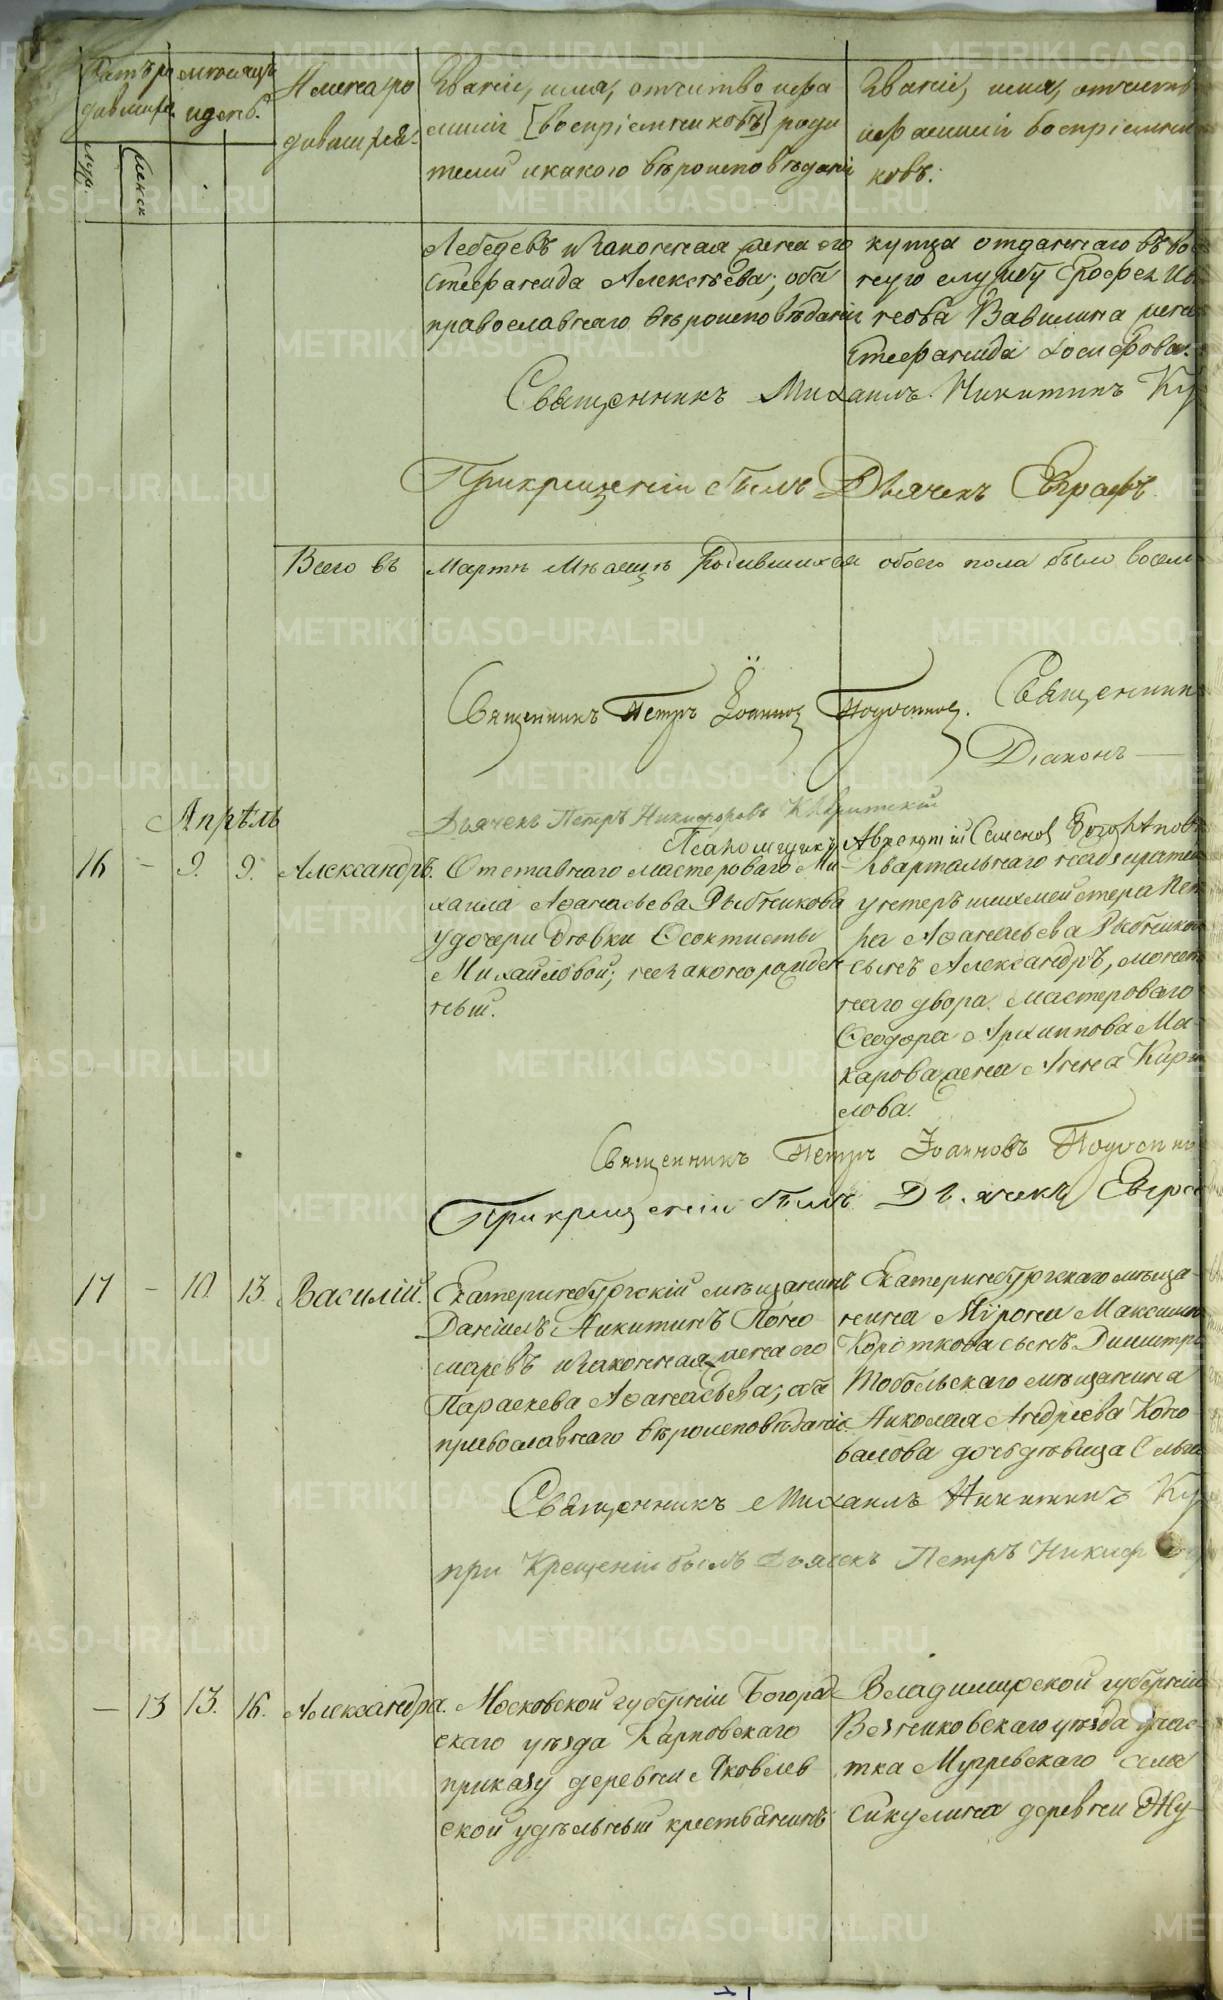 Счетъ ро
дившихъ.
мѣсяцъ
и день.
Имена ро
дившихся.
Званіе, имя, отчество и фа
миліи [воспріемниковъ] роди
телей и какого вѣроисповѣданія
Званіе, имя, отчест
и фамиліи воспріемни
ковъ.
муж.
женск
Лебедевъ и законная жена его
Стефанида Алексѣева; оба
православнаго вѣроисповѣданія
купца отданнаго въ во
ную службу Ерофея Ив
нова Вавилина жена
Стефанида Іосифова.
Священникъ Михаилъ Никитинъ
При крещеніи былъ Дьячекъ Евграфъ
Всего въ Мартѣ Мѣсяцѣ Родившихся обоего пола было восем
Священникъ Петръ Іоанновъ
Священник
Діаконъ
Дьячекъ Петръ Никифоровъ
Апрѣль
16 – 9. 9. Александръ.
Отставнаго мастероваго Ми-
хаила Аѳанасьева Рыбникова
у дочери Дѣвки Ѳеоктисты
Михайловой; незаконорожден
ный.
Квартальнаго надзирател
унтеръ шихмейстера Пет
ра Аѳанасьева Рыбников
сынъ Александръ, монет
наго двора мастероваго
Ѳеодора Архиппова Ма-
карова жена Анна Кири
лова.
Священникъ Петръ Іоанновъ
При крещеніи былъ Дьячекъ Евгра
17 – 10. 13. Василій.
Екатеринбургскій мѣщанинъ
Даніилъ Никитинъ Поно
маревъ и законная жена его
Параскева Аѳанасьева; оба
православнаго вѣроисповѣданія.
Екатеринбургскаго мѣща-
нина Мѵрона Максимо
Короткова сынъ Димитрі
Тобольскаго мѣщанина
Николая Андреева Коно
валова дочь дѣвица
Священникъ Михаилъ Никитинъ
при Крещеніи былъ Дьячекъ Петръ Никиф
– 13 13. 16. Александра.
Московской губерніи Богород
скаго уѣзда Карповскаго
приказу деревни Яковлев
ской удѣльный крестьянинъ
Владимирской губерніи
Вязниковскаго уѣзда учас-
тка Мугреевскаго села
Сикулина деревни Жу-
METRIKI.GASO-URAL.RU